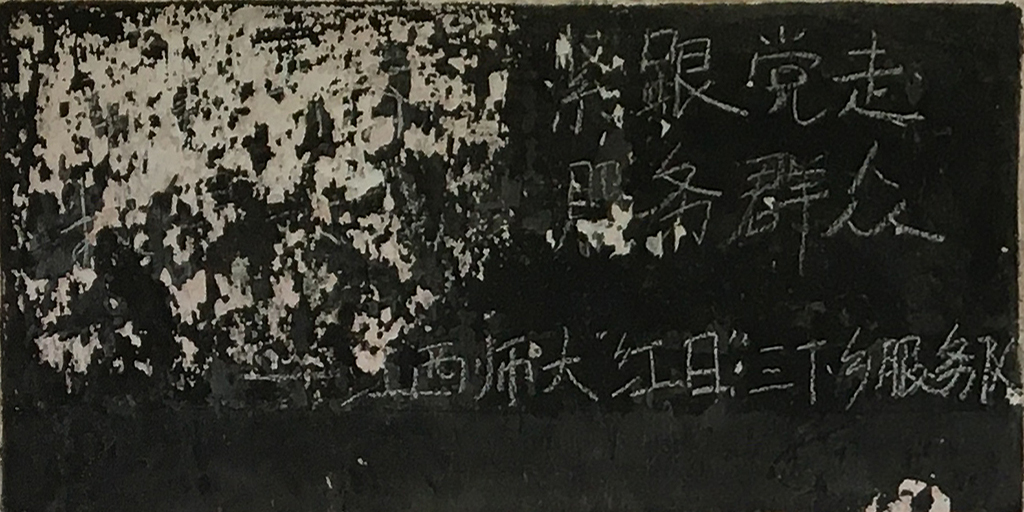 紧跟党走
服务群众
江西师大"红日"三下乡服务队